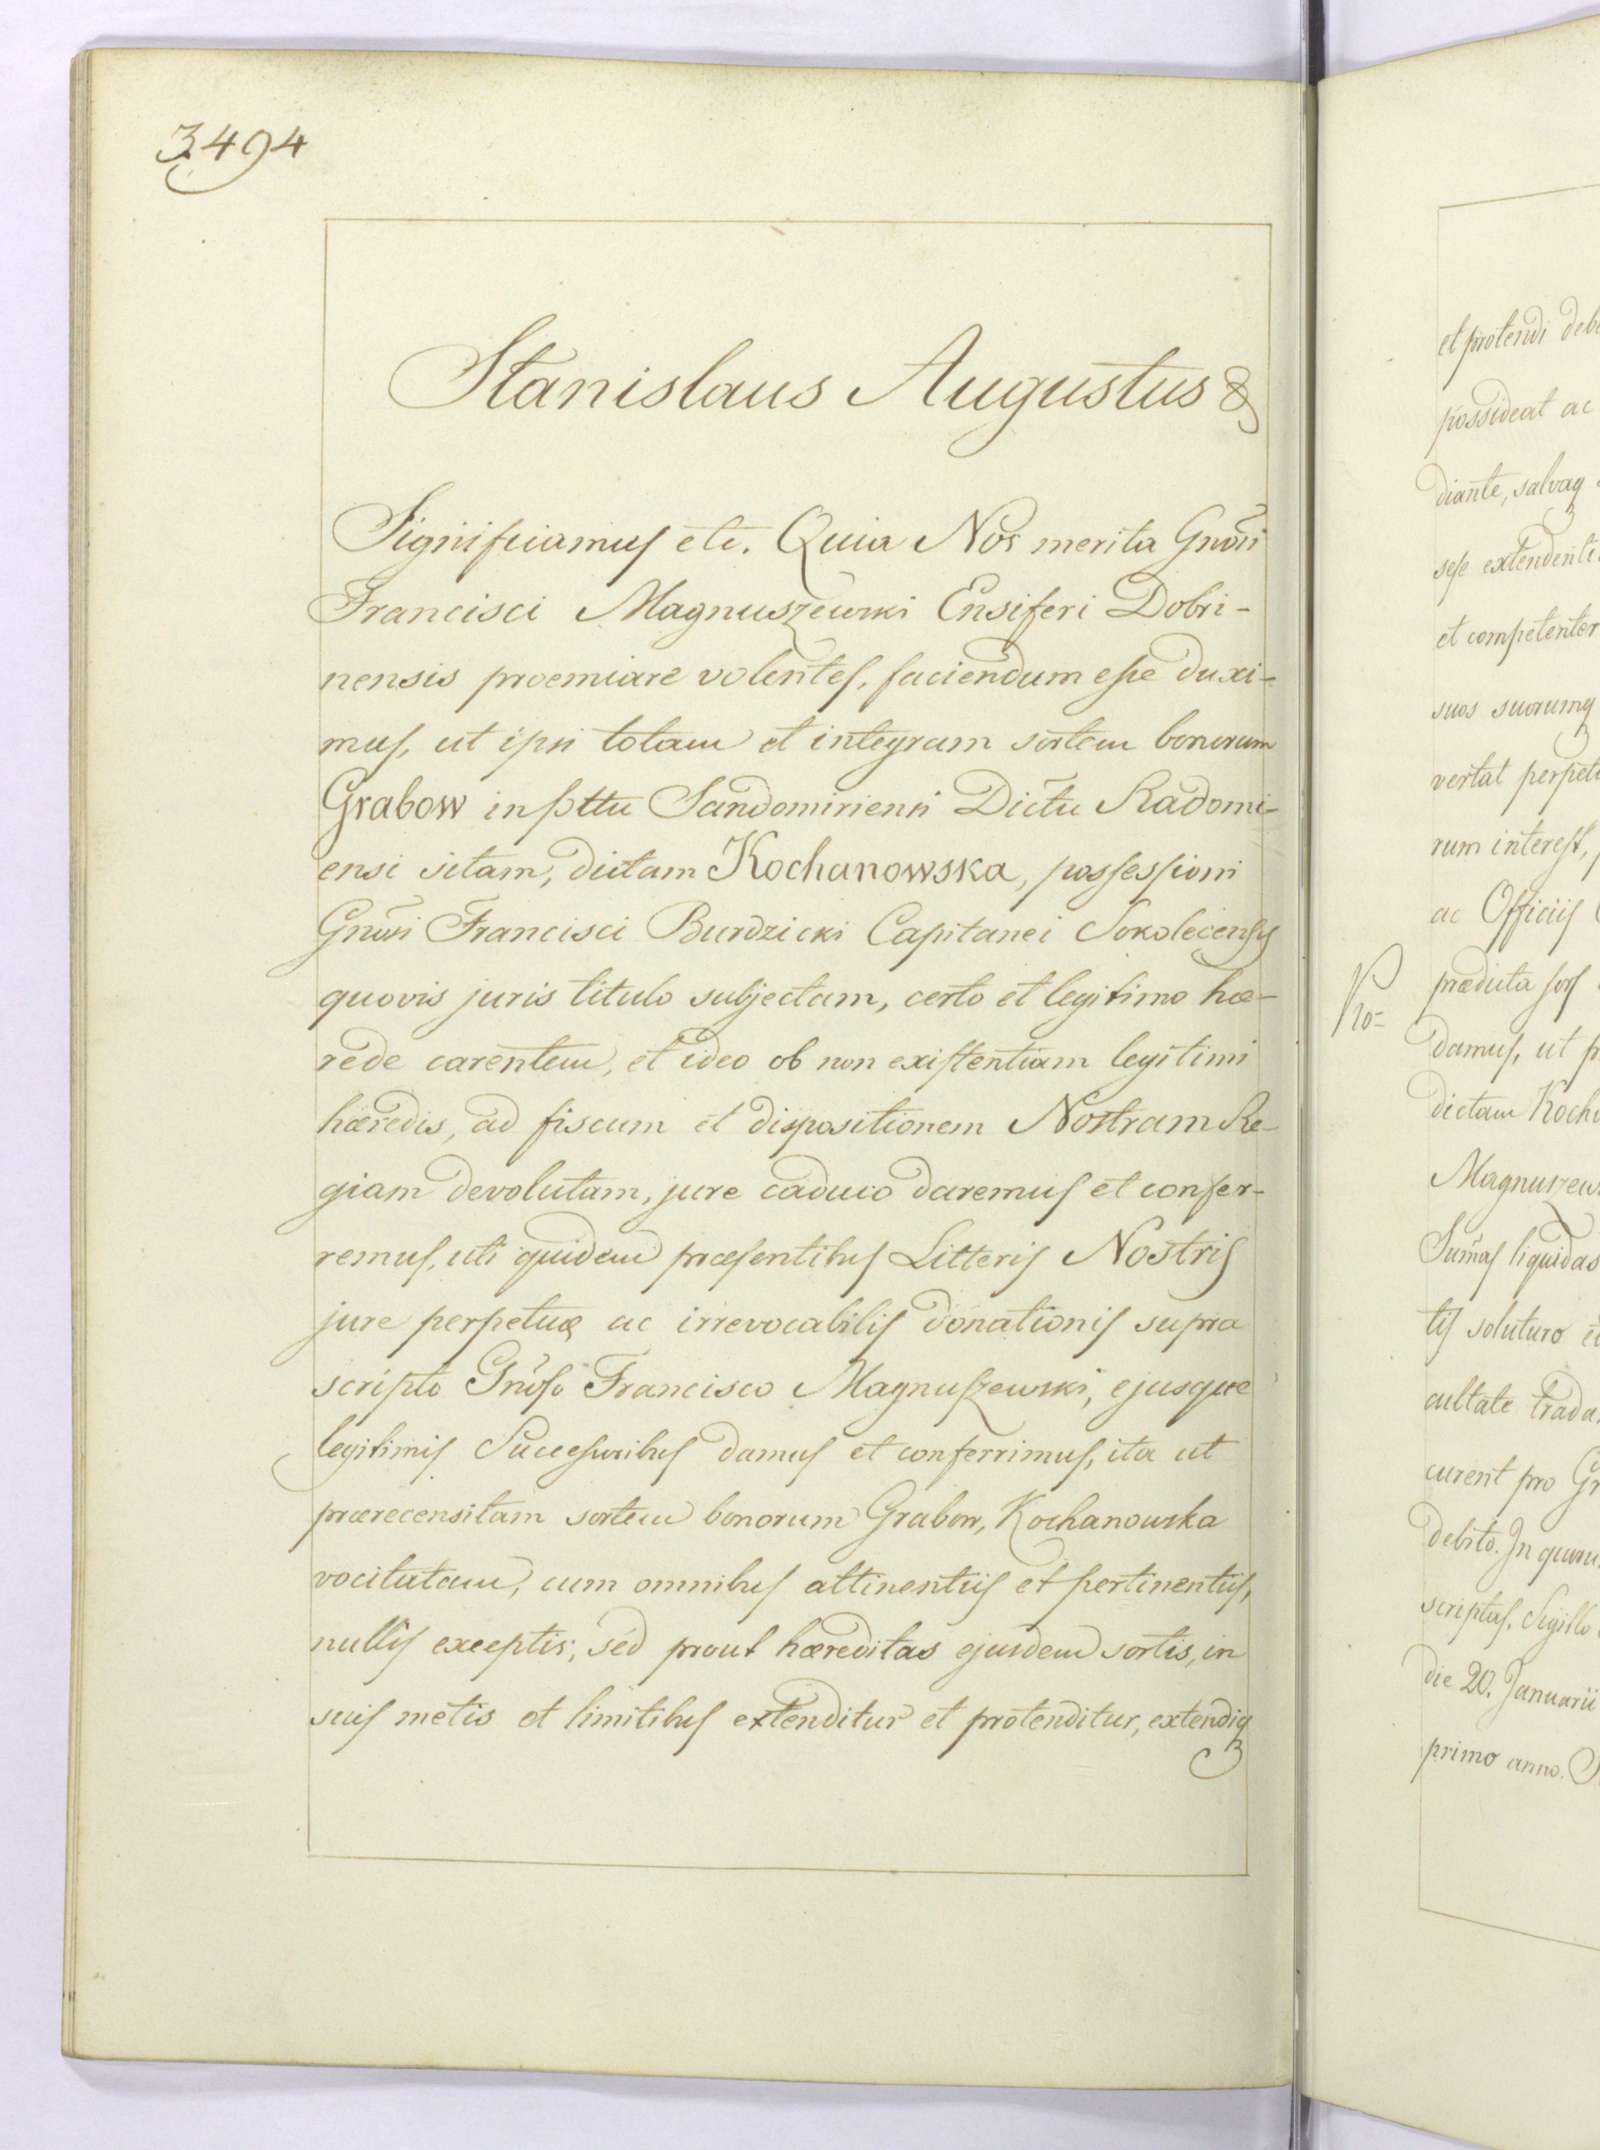 3494
Stanislaus Augustus &
Significamus etc. Quia Nos merita Gnōsi
Francisci Magnuszewski Ensiferi Dobri-
nensis proemiare volentes, faciendum esse duxi-
mus, ut ipsi totam et integram sortem bonorum
Grabow in pttu Sandomiriensi Dictu Radomi-
ensi sitam, dictam Kochanowska, possessioni
Gnōsi Francisci Burdzicki Capitanei Sokolecensis
quovis juris titulo subjectam, certo et legitimo hæ-
rede carentem, et ideo ob non existentiam legitimi
hæredis, ad fiscum et dispositionem Nostram Re-
giam devolutam, jure caduco daremus et confer-
remus, uti quidem præsentibus Litteris Nostris
jure perpetuæ ac irrevocabilis donationis supra
scripto Gnōso Francisco Magnuszewski, ejusque
legitimis Successoribus damus et conferrimus, ita ut
prærecensitam sortem bonorum Grabow, Kochanowska
vocitatam, cum omnibus attinentiis et pertinentiis,
nullis exceptis; sed prout hæreditas ejusdem sortis, in
suis metis et limitibus extenditur et protenditur, extendiq
et protendi deb
possideat ac
diante, salvaq
sese extendenti
et competenter
suos suorumq
vertat perpetu
rum interest,
ac Officiis
prædicta sors
Pro-
damus, ut p
dictam Kocha
Magnuszews
Sum̃as liquidas
tis soluturo
cultate trada
curent pro Gr
debito. In quoru
scriptus, Sigillo
die 20. Januarii
primo anno.